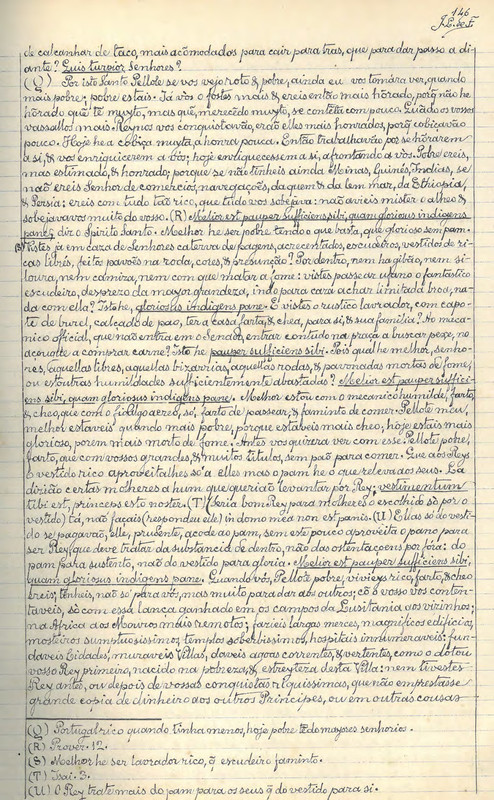 146
J.L. de F.
de calcanhar de taco, mais acõmodados para cair para tras, que para dar passo a di-
ante? Quis turvior Senhores?
(Q) Por isto Santo Pellote se vos vejo roto & pobre, ainda eu vos tomára ver, quando
mais pobre; pobre estais. Já vòs o fostes mais & ereis então mais hõrado, porq̃ não he
hõrado que tẽ muyto, mas que, merecẽdo muyto, se contẽta com pouco. Quãdo os vossos
vassallos mais Reynos vos conquistavão, erão elles mais honrados, porq̃ cobiçavão
pouco. Hoje he a cõbiça muyta, a honra pouca. Então trabalhavão por se hõrarem
a si, & vos enriquicerem a vòs; hoje enriquecesse m a si, afrontando a vòs. Pobre ereis,
mas estimado, & honrado; porque se não tinheis ainda Meinas, Guinés, Indias, se
não ereis Senhor de comercios, navegações, da quem & da lem mar, da Ethiopia,
& Persia: ereis com tudo tão rico, que tudo vos sobejava: não avieis mister o alheo &
sobejavavos muito do vosso. (R) Melior est pauper sufficiens sibi, quam gloriosus indigens
pane, diz o Spirito Santo. Melhor he ser pobre tendo o que basta, que glorioso sem pam.
(S) Vistes já em caza de Senhores caterva de pagens, acrecentados, escudeiros, vestidos de ri-
cas librés, feitos pavões na roda, cores, & presunção? Por dentro, nem ha gibão, nem si-
loura, nem camiza, nem com que matar a fome: vistes passear ufano o fantastico
escudeiro, desprezo da mayor grandeza, indo para caza achar imitada boda, na-
da com ella? Isto he, gloriosus indigens pane. E vistes o rustico lavrador, com capo-
te de burel, calçado de pao, ter a casa farta, & chea, para si, & sua familia? Ao mica-
nico official, que não entra em o Senado, entrar contudo na praça a buscar peixe, no
açougue a comprar carne? Isto he pauper sufficiens sibi. Pois qual he melhor, senho-
res, aquellas libres, aquellas bizarrias, aquellas rodas, & pavonadas mortas de fome,
ou est'outras humildades sufficientemente abastadas? Melior est pauper suffici-
ens sibi, quam gloriosus indigens pane. Melhor estou com o mecanico humilde, farto,
& cheo, que com o fidalgo aereo, só, farto de passear, & faminto de comer. Pellote meu,
melhor estaveis quando mais pobre, porque estaveis mais cheo; hoje estais mais
glorioso, porem mais morto de fome. Antes vos quizera ver com esse Pellote pobre,
farto, que com vossos grandes, & muitos titulos, sem pão para comer. Que aos Reys
o vestido rico aproveitalhes só a elles mas o pam he o que releva aos seus. Lá
dizião certas molheres a hum que querião levantar por Rey; vestimentum
tibi est, princeps esto noster. (T) (Seria bom Rey para molheres o escolhido só por o
vestido) tá, não façais (respondeu elle) in domo mea non est panis. (U) Ellas só do vesti-
do se pagavão, elle, prudente, acode ao pam, sem este pouco aproveita o pano para
ser Rey, que deve tratar da substancia de dentro, não das ostentaçoens por fóra: do
pam para sustento, não do vestido para gloria. Melior est pauper sufficiens sibi,
quam gloriosus indigens pane. Quando vòs, Pellote pobre, vivieys rico, farto, & cheo
ereis; tenheis, não só para vòs, mas muito para dar aos outros; cõ o vosso vos conten-
taveis, só com essa lança ganhado em os campos da Lusitania aos visinhos;
na Africa aos Mouros mais remotos; fazieis largas merces, magnificos edificios,
mosteiros sumptuosissimos, templos soberbissimos, hospitais innumeraveis: fun-
daveis Cidades, muraveis Villas, daveis agoas correntes, & vertentes, como o dotou
vosso Rey primeiro, nacido na pobreza, & estreyteza desta Villa: nem tivestes
Rey antes, ou depois de vossas conquistas riquissimas, que não emprestasse
grande copia de dinheiro aos outros Principes, ou em outras cousas
(Q) Portugal rico quando tinha menos, hoje pobre tẽdo mayores senhorios.
(R) Prover. 12.
(S) Melhor he ser lavrador rico, q̃ escudeiro faminto.
(T) Isai. 3.
(U) O Rey trate mais do pam para os seus q̃ do vestido para si.